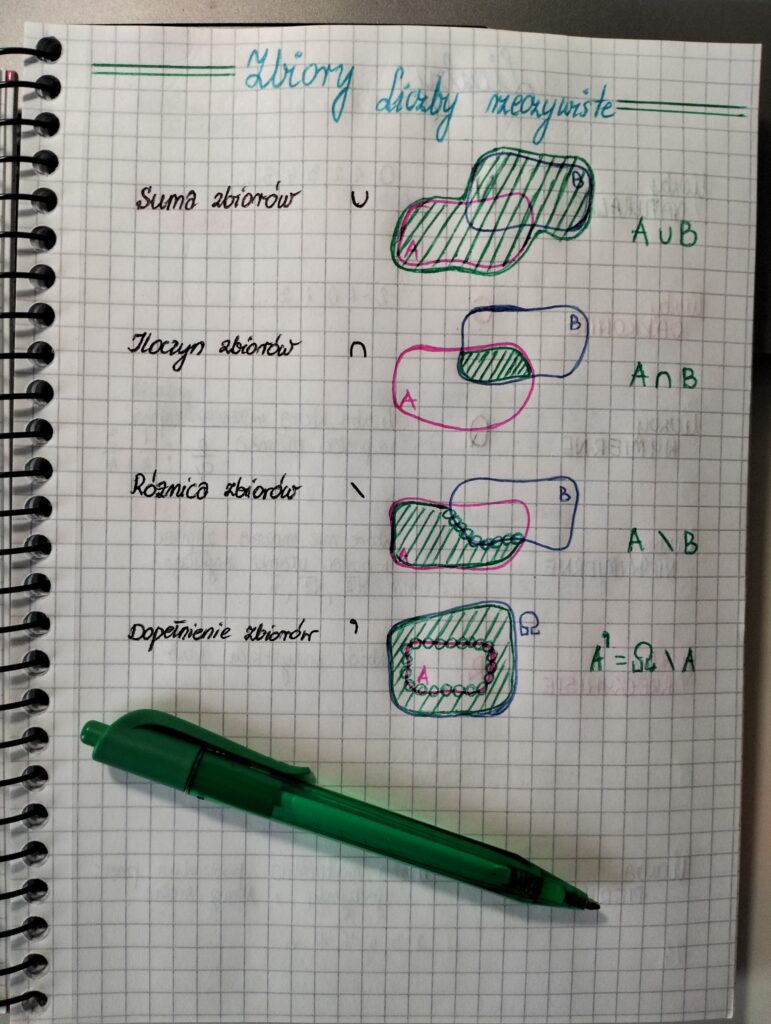 Zbiory Liczby rzeczywiste
Suma zbiorów ∪ A B A ∪ B
Iloczyn zbiorów ∩ A B A ∩ B
Różnica zbiorów \ A B A \ B
Dopełnienie zbiorów ' A Ω A' = Ω \ A